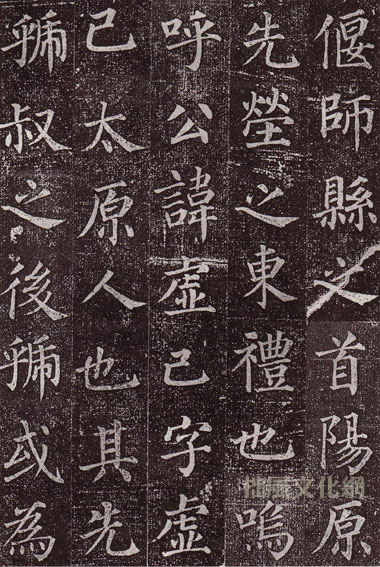 偃師縣之首陽原
先塋之東禮也嗚
呼公諱虛己字虛
己太原人也其先
虢叔之後虢或為
拙風文化網